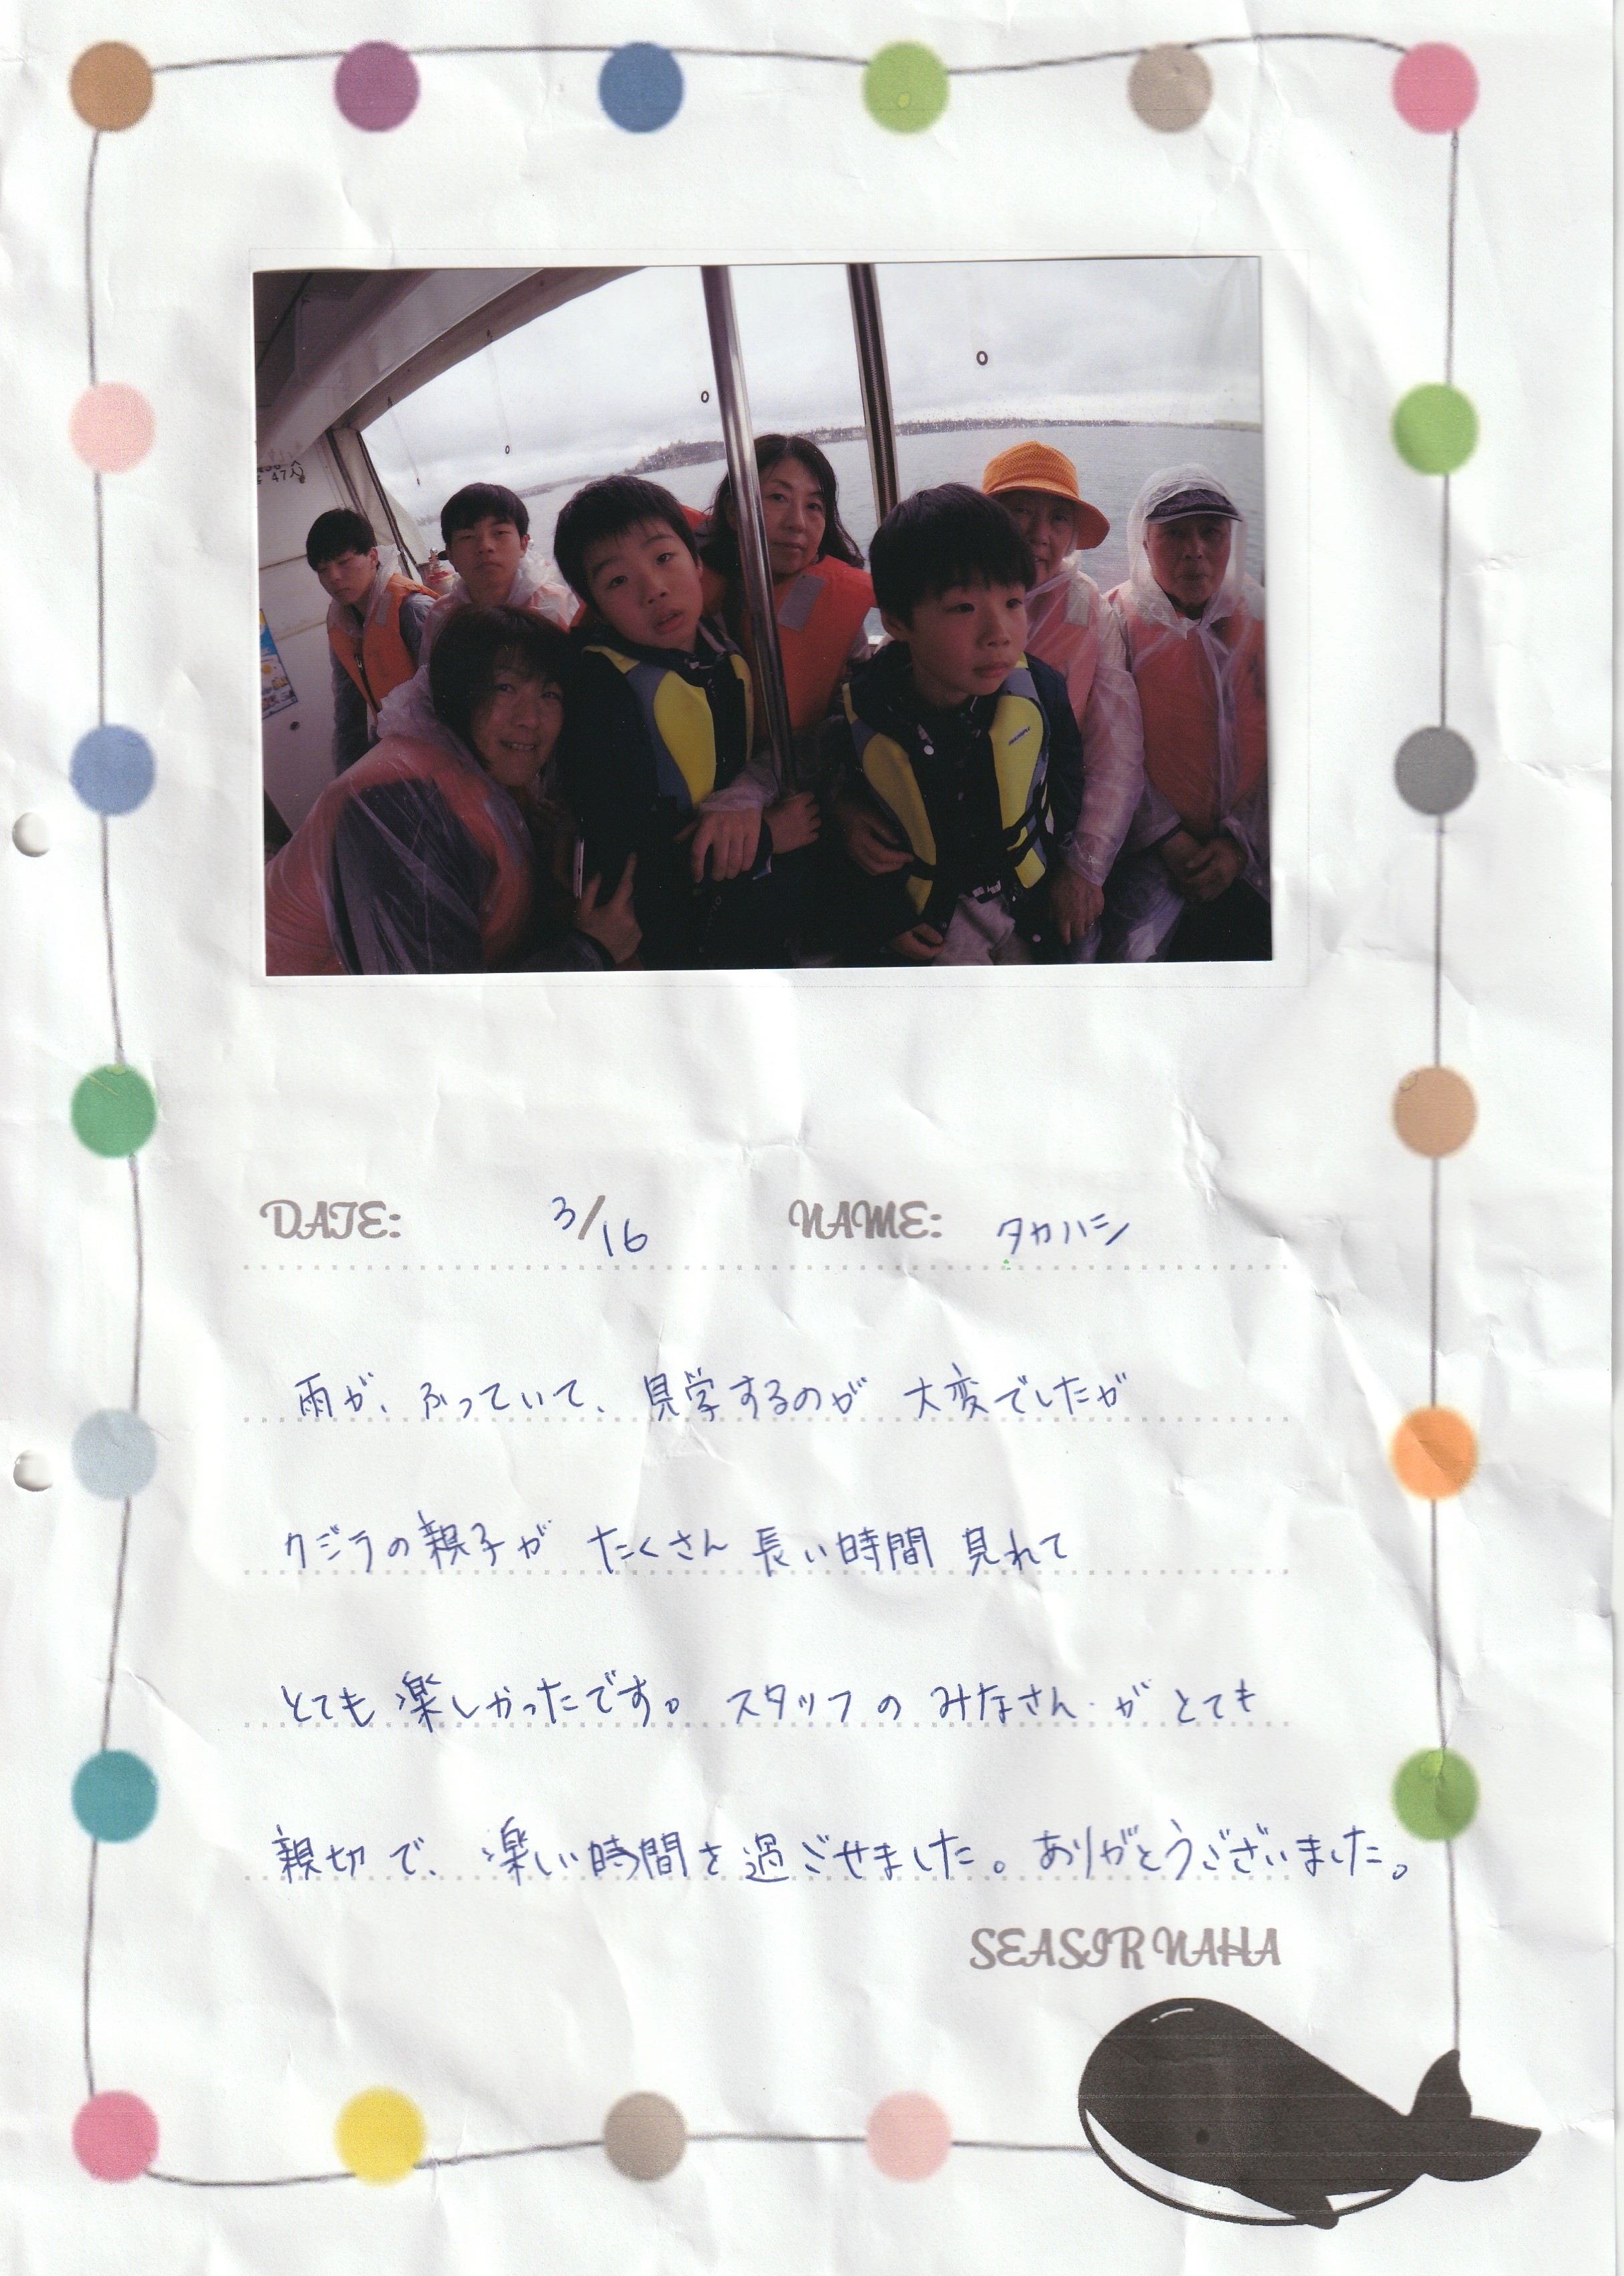 47人
DATE: 3/16 NAME: タカハシ
雨が、ふっていて、見学するのが 大変でしたが
クジラの親子が たくさん 長い時間 見れて
とても 楽しかったです。 スタッフの みなさんが とても
親切で、楽しい時間を過ごせました。ありがとうございました。
SEASIR NAHA